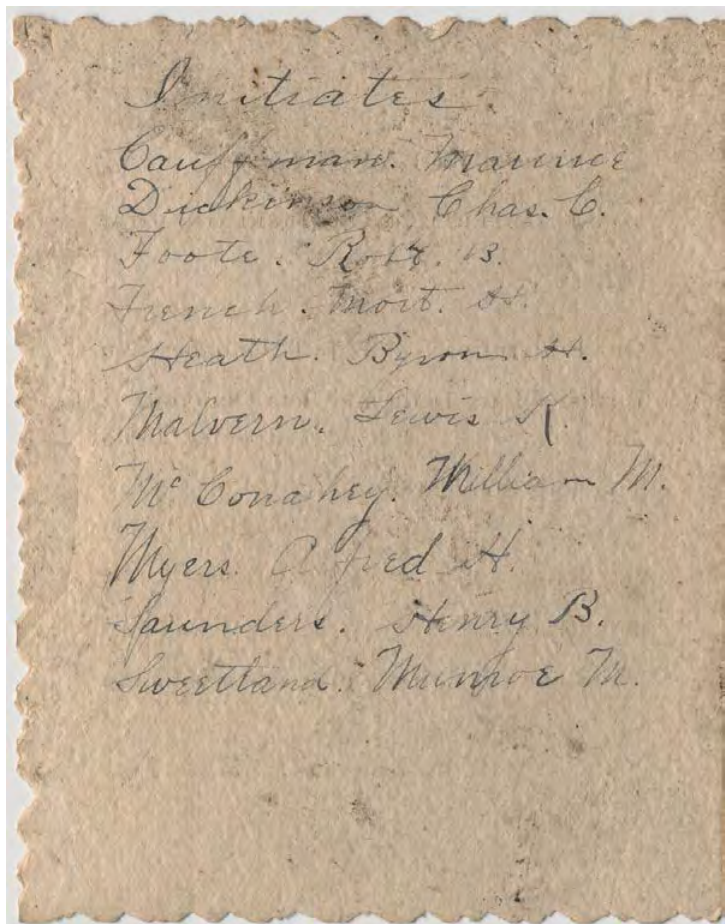 Initiates.
Cauffman. Maurice
Dickinson Chas. C.
Foote. Robt. B.
French. Mort. H.
Heath. Byron H.
Malvern. Lewis K.
McConahey. William M.
Myers. Alfred H.
Saunders. Henry B.
Sweetland. Munroe M.